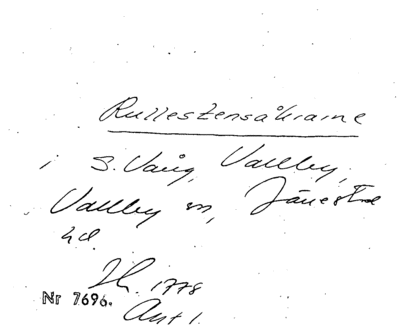 Rullestensåkrarne
i S. Vång, Vallby,
Vallby sn, Järrestad
hd
Sk. 1778
Akt 1.
Nr 7696.